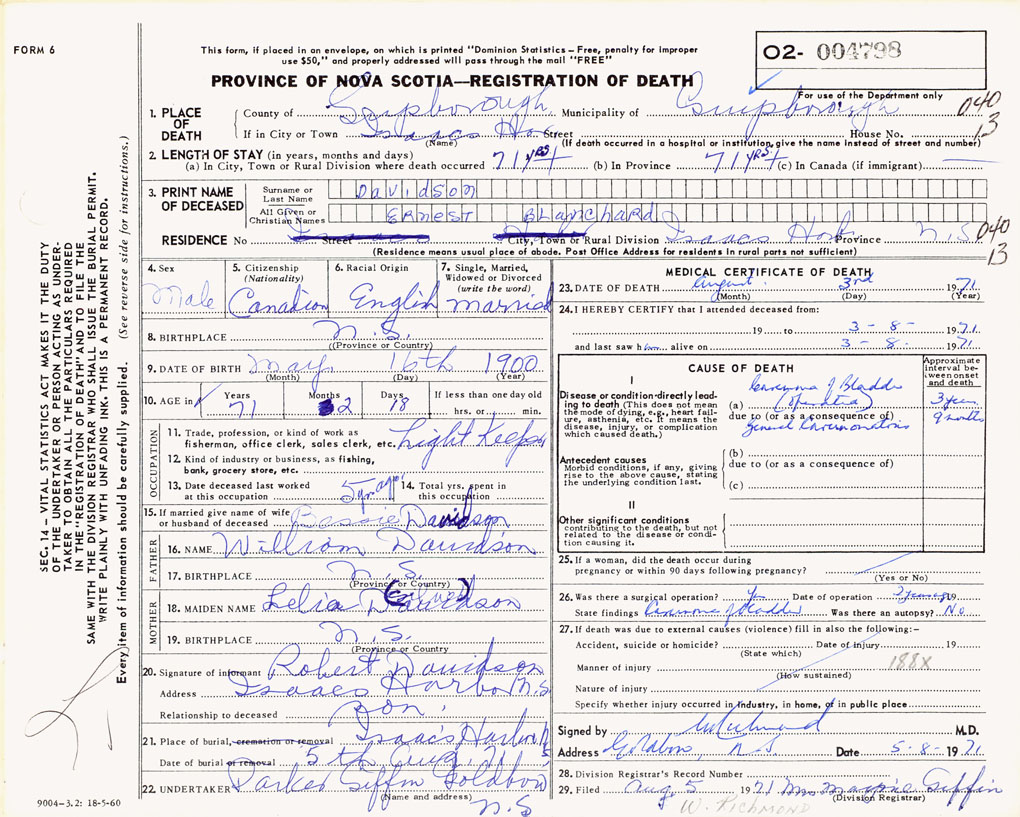 FORM 6
This form, if placed in an envelope, on which is printed "Dominion Statistics — Free, penalty for improper
use $50," and properly addressed will pass through the mail "FREE"
O2- 004798
For use of the Department only
PROVINCE OF NOVA SCOTIA—REGISTRATION OF DEATH
040
13
1. PLACE OF DEATH
County of Guysborough Municipality of Guysborough
If in City or Town Isaacs Hb. Street House No.
(Name) (If death occurred in a hospital or institution, give the name instead of street and number)
2. LENGTH OF STAY (in years, months and days)
(a) In City, Town or Rural Division where death occurred 71 YRS + (b) In Province 71 YRS + (c) In Canada (if immigrant)
3. PRINT NAME OF DECEASED
Surname or Last Name Davidson
All Given or Christian Names ERNEST Blanchard
RESIDENCE No Street City, Town or Rural Division Isaacs Harb Province N.S
040
13
(Residence means usual place of abode. Post Office Address for residents in rural parts not sufficient)
4. Sex
Male
5. Citizenship
(Nationality)
Canadian
6. Racial Origin
English
7. Single, Married, Widowed or Divorced
(write the word)
married
8. BIRTHPLACE N.S.
(Province or Country)
9. DATE OF BIRTH May 16th 1900
(Month) (Day) (Year)
10. AGE in Years Months Days If less than one day
71 2 18 hrs. or min.
OCCUPATION
11. Trade, profession, or kind of work as
fisherman, office clerk, sales clerk, etc. Light Keeper
12. Kind of industry or business, as fishing,
bank, grocery store, etc.
13. Date deceased last worked
at this occupation 5 yr ago
14. Total yrs. spent in
this occupation
15. If married give name of wife
or husband of deceased Bessie Davidson
FATHER
16. NAME William Davidson
17. BIRTHPLACE N.S.
(Province or Country)
MOTHER
18. MAIDEN NAME Lelia Davidson
19. BIRTHPLACE N.S.
(Province or Country)
20. Signature of informant Robert Davidson
Address Isaacs Harbor N.S
Relationship to deceased Son
21. Place of burial, cremation or removal Isaac's Harbor N
Date of burial or removal 5th Aug. 71 S
22. UNDERTAKER Parker Giffin Goldboro
(Name and address)
N.S
MEDICAL CERTIFICATE OF DEATH
23. DATE OF DEATH August 3rd 1971
(Month) (Day) (Year)
24. I HEREBY CERTIFY that I attended deceased from:
19 to 3 - 8 - 1971
and last saw him alive on 3 - 8 - 1971
CAUSE OF DEATH
Approximate interval between onset and death
I
Disease or condition directly leading to death (This does not mean the mode of dying, e.g., heart failure, asthenia, etc. It means the disease, injury, or complication which caused death.)
(a) Carcinoma of Bladder
(operated) 3 years
due to (or as a consequence of) 9 months
General Carcinomatosis
Antecedent causes
Morbid conditions, if any, giving rise to the above cause, stating the underlying condition last.
(b)
due to (or as a consequence of)
(c)
II
Other significant conditions
contributing to the death, but not related to the disease or condition causing it.
25. If a woman, did the death occur during
pregnancy or within 90 days following pregnancy?
(Yes or No)
26. Was there a surgical operation? Yes Date of operation 3 years ago 19
State findings Carcinoma of Bladder Was there an autopsy? No
27. If death was due to external causes (violence) fill in also the following:—
Accident, suicide or homicide? Date of injury 19
(State which)
Manner of injury 188X
(How sustained)
Nature of injury
Specify whether injury occurred in industry, in home, or in public place
Signed by M.D.
Address Goldboro, N S Date 5-8-1971
28. Division Registrar's Record Number
29. Filed Aug. 5 1971 Mrs Marjorie Giffin
(Division Registrar)
W. RICHMOND
SEC. 14 — VITAL STATISTICS ACT MAKES IT THE DUTY
OF THE UNDERTAKER OR PERSON ACTING AS UNDER-
TAKER TO OBTAIN ALL THE PARTICULARS REQUIRED
IN THE "REGISTRATION OF DEATH" AND TO FILE THE
SAME WITH THE DIVISION REGISTRAR WHO SHALL ISSUE THE BURIAL PERMIT.
WRITE PLAINLY WITH UNFADING INK. THIS IS A PERMANENT RECORD.
Every item of information should be carefully supplied. (See reverse side for instructions.)
9004-3.2: 18-5-60